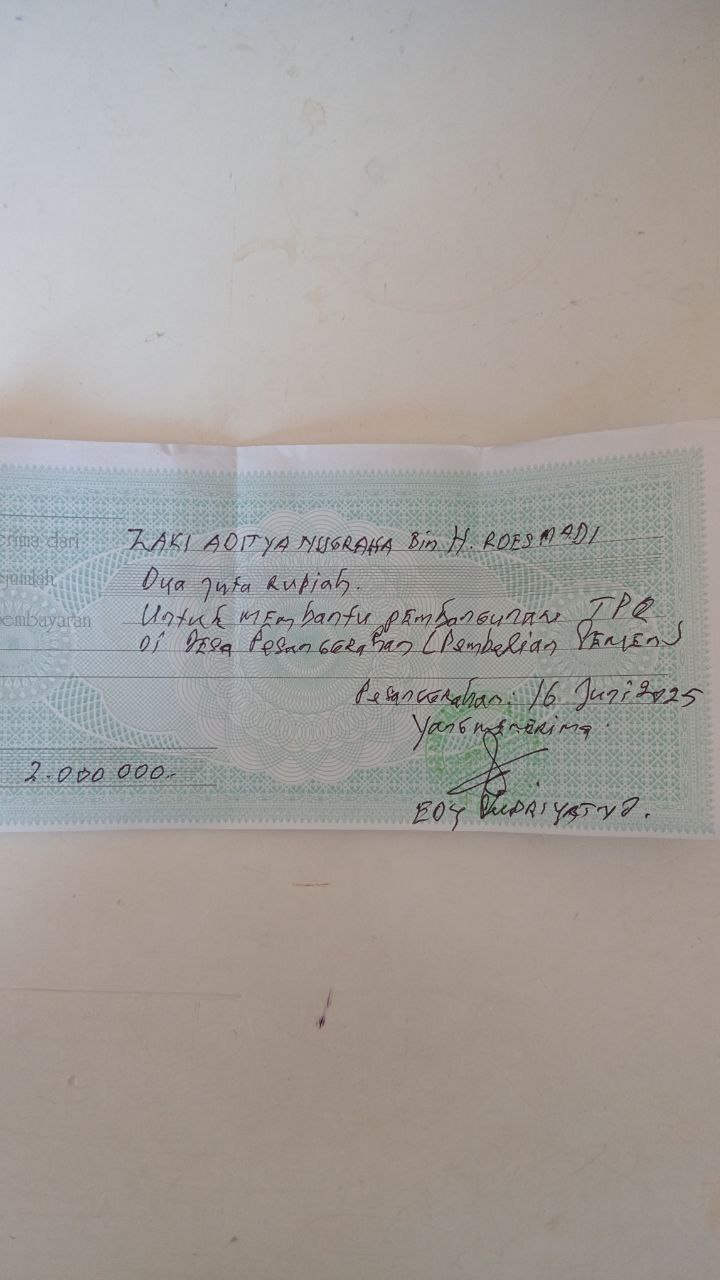 erima dari ZAKI ADITYA NUGRAHA Bin H. ROESMADI
ejumlah Dua Juta Rupiah.
embayaran Untuk MEmbantu pEmbangunan TPQ
Di DEsa PesanGGrahan (Pembelian SEMEN)
PesanGGrahan: 16 Juni 2025
Yang mEnErima.
2.000 000.-
EDY SUPRIYATNO.